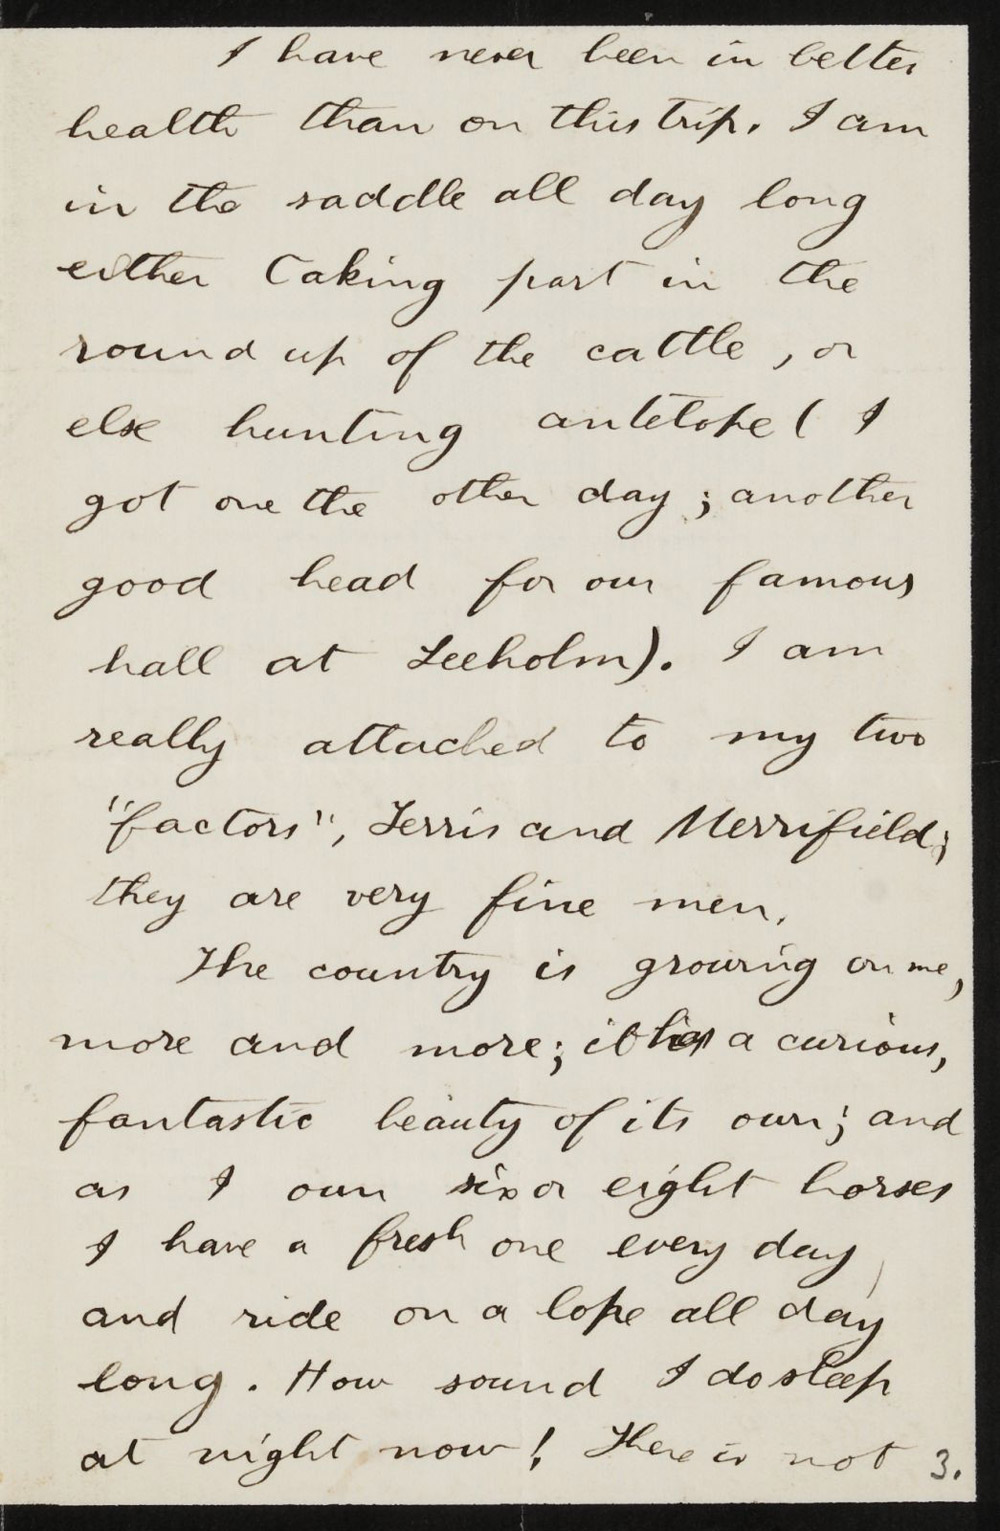 I have never been in better
health than on this trip. I am
in the saddle all day long
either taking part in the
round up of the cattle, or
else hunting antelope ( I
got one the other day; another
good head for our famous
hall at Leeholm). I am
really attached to my two
"factors", Ferris and Merrifield;
they are very fine men.
The country is growing on me,
more and more; it has a curious,
fantastic beauty of its own; and
as I own six or eight horses
I have a fresh one every day,
and ride on a lope all day
long. How sound I do sleep
at night now! There is not
3.